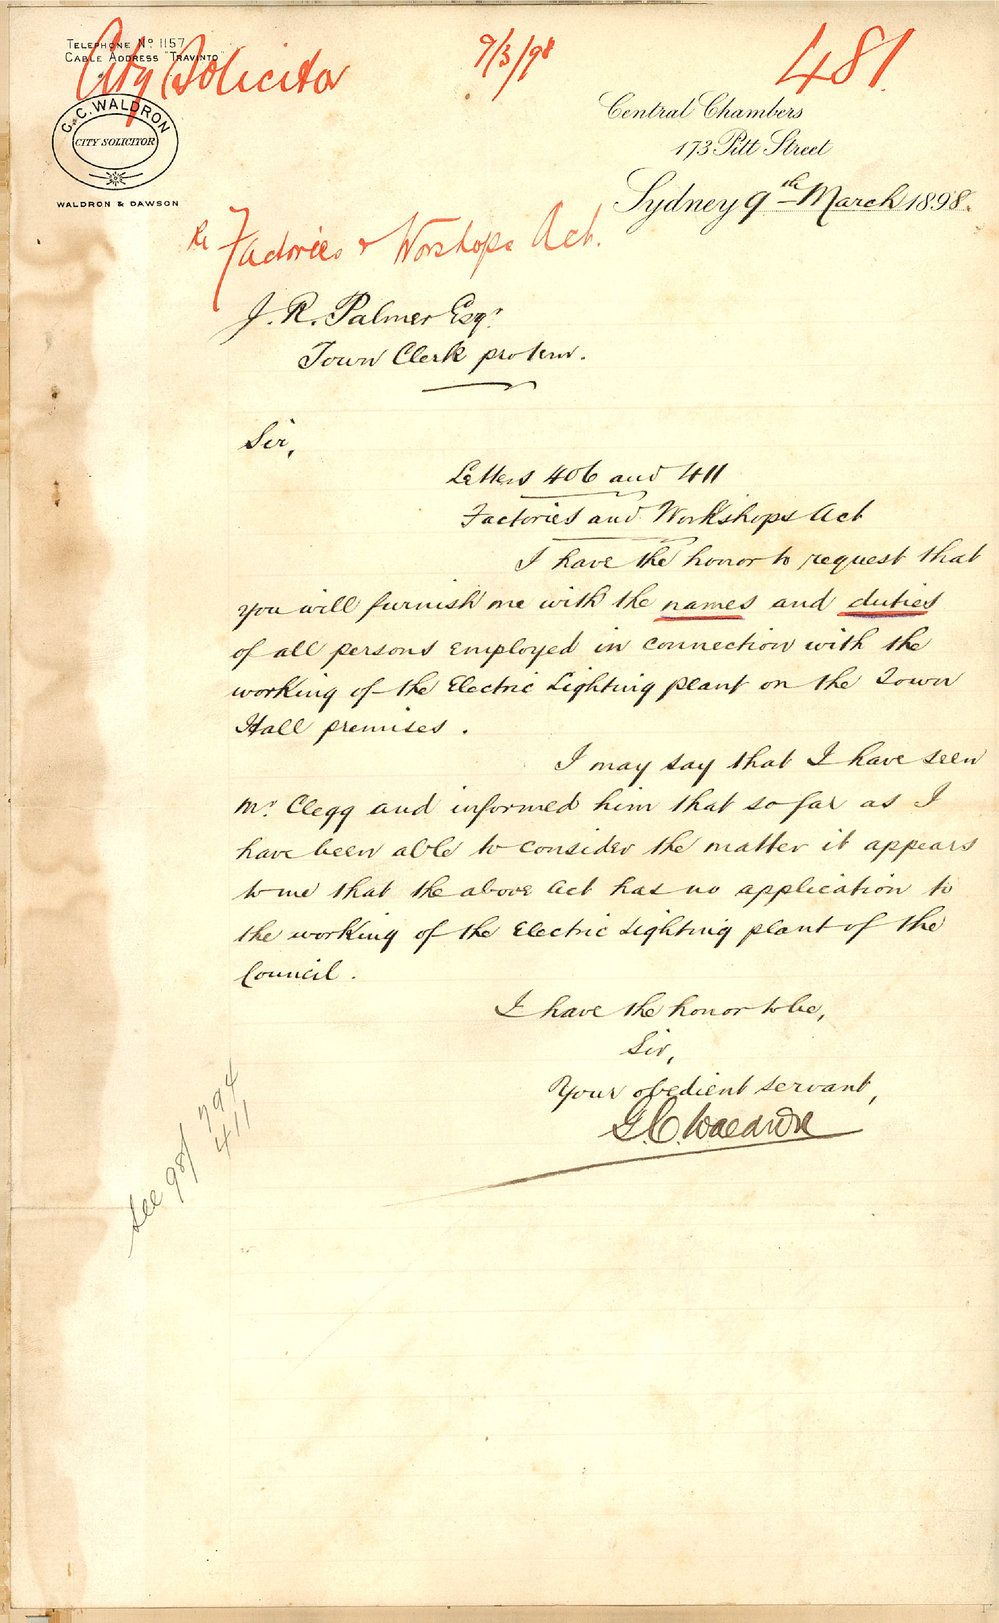 Telephone No 1157
Cable Address "Travinto"
City Solicitor
9/3/98
481
G. C. WALDRON
CITY SOLICITOR
WALDRON & DAWSON
Central Chambers
173 Pitt Street
Sydney 9th March 1898.
Re Factories & Worshops Act.
J. R. Palmer Esqr.
Town Clerk protem.
Sir,
Letters 406 and 411
Factories and Workshops Act
I have the honor to request that
you will furnish me with the names and duties
of all persons employed in connection with the
working of the Electric Lighting plant on the Town
Hall premises.
I may say that I have seen
Mr. Clegg and informed him that so far as I
have been able to consider the matter it appears
to me that the above Act has no application to
the working of the Electric Lighting plant of the
Council.
I have the honor to be,
Sir,
Your obedient servant,
G. C. Waldron
See 98/ 794
411